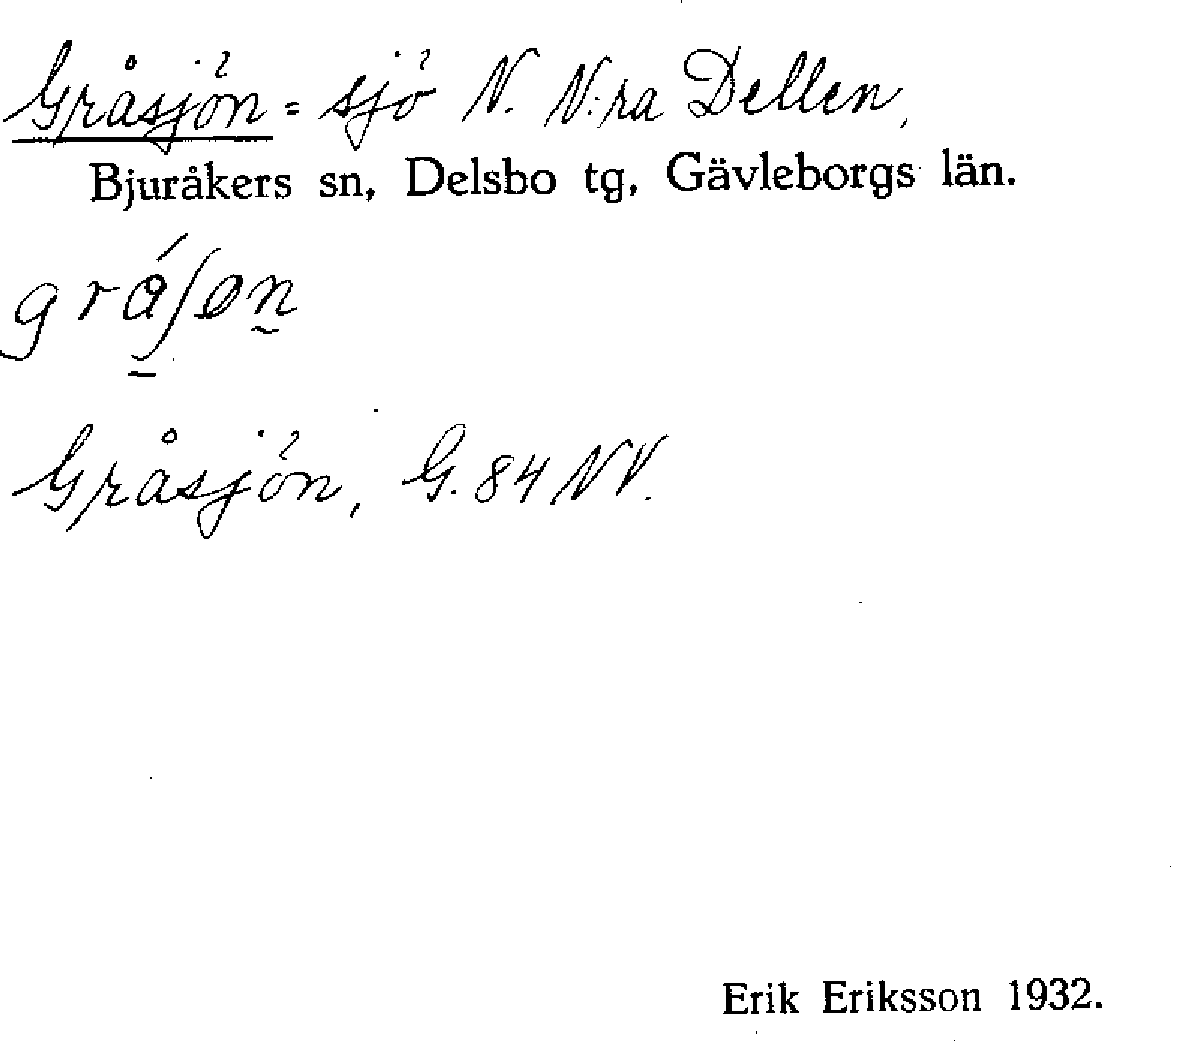 Gråsjön = sjö N. N:ra Dellen,
Bjuråkers sn, Delsbo tg, Gävleborgs län.
Gråsjön, G. 84 NV.
Erik Eriksson 1932.